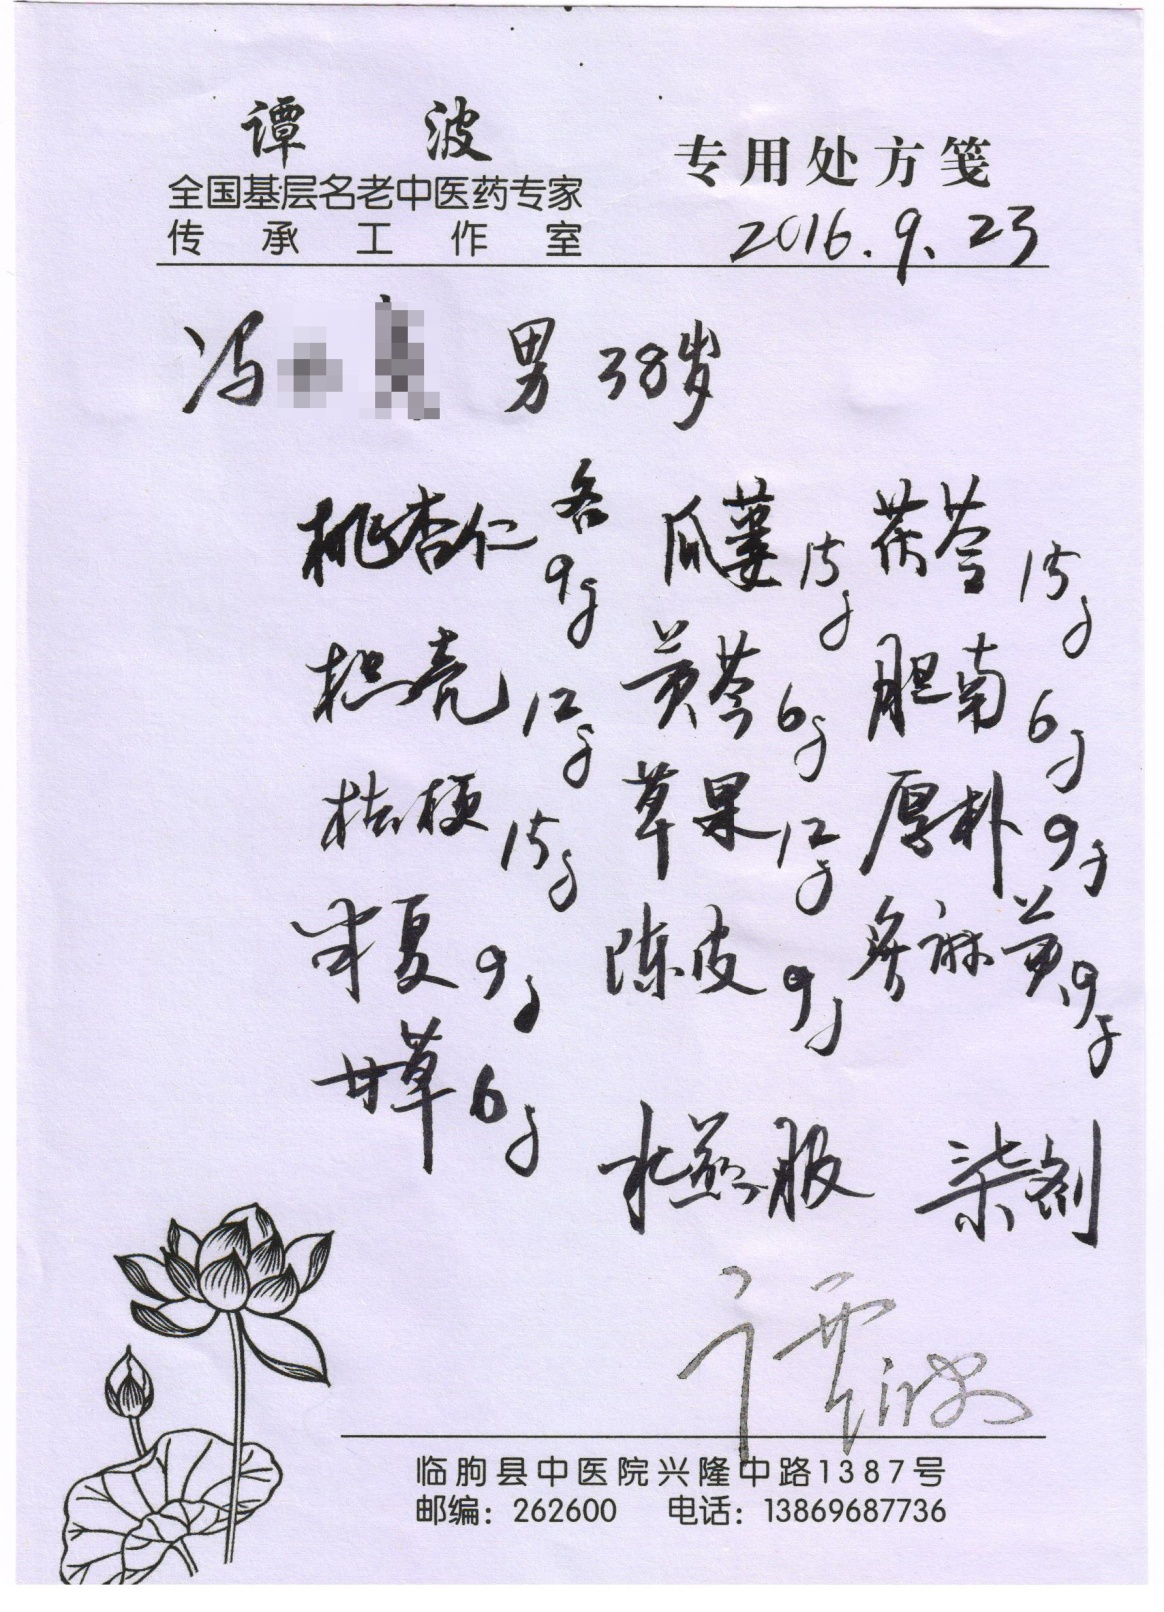 谭波 专用处方笺
全国基层名老中医药专家
传承工作室 2016.9.23
冯 男 38岁
桃杏仁各9g 瓜蒌15g 茯苓15g
枳壳12g 黄芩6g 胆南6g
桔梗15g 草果12g 厚朴9g
半夏9g 陈皮9g 炙麻黄9g
甘草6g
水煎服 柒剂
谭波
临朐县中医院兴隆中路1387号
邮编：262600 电话：13869687736